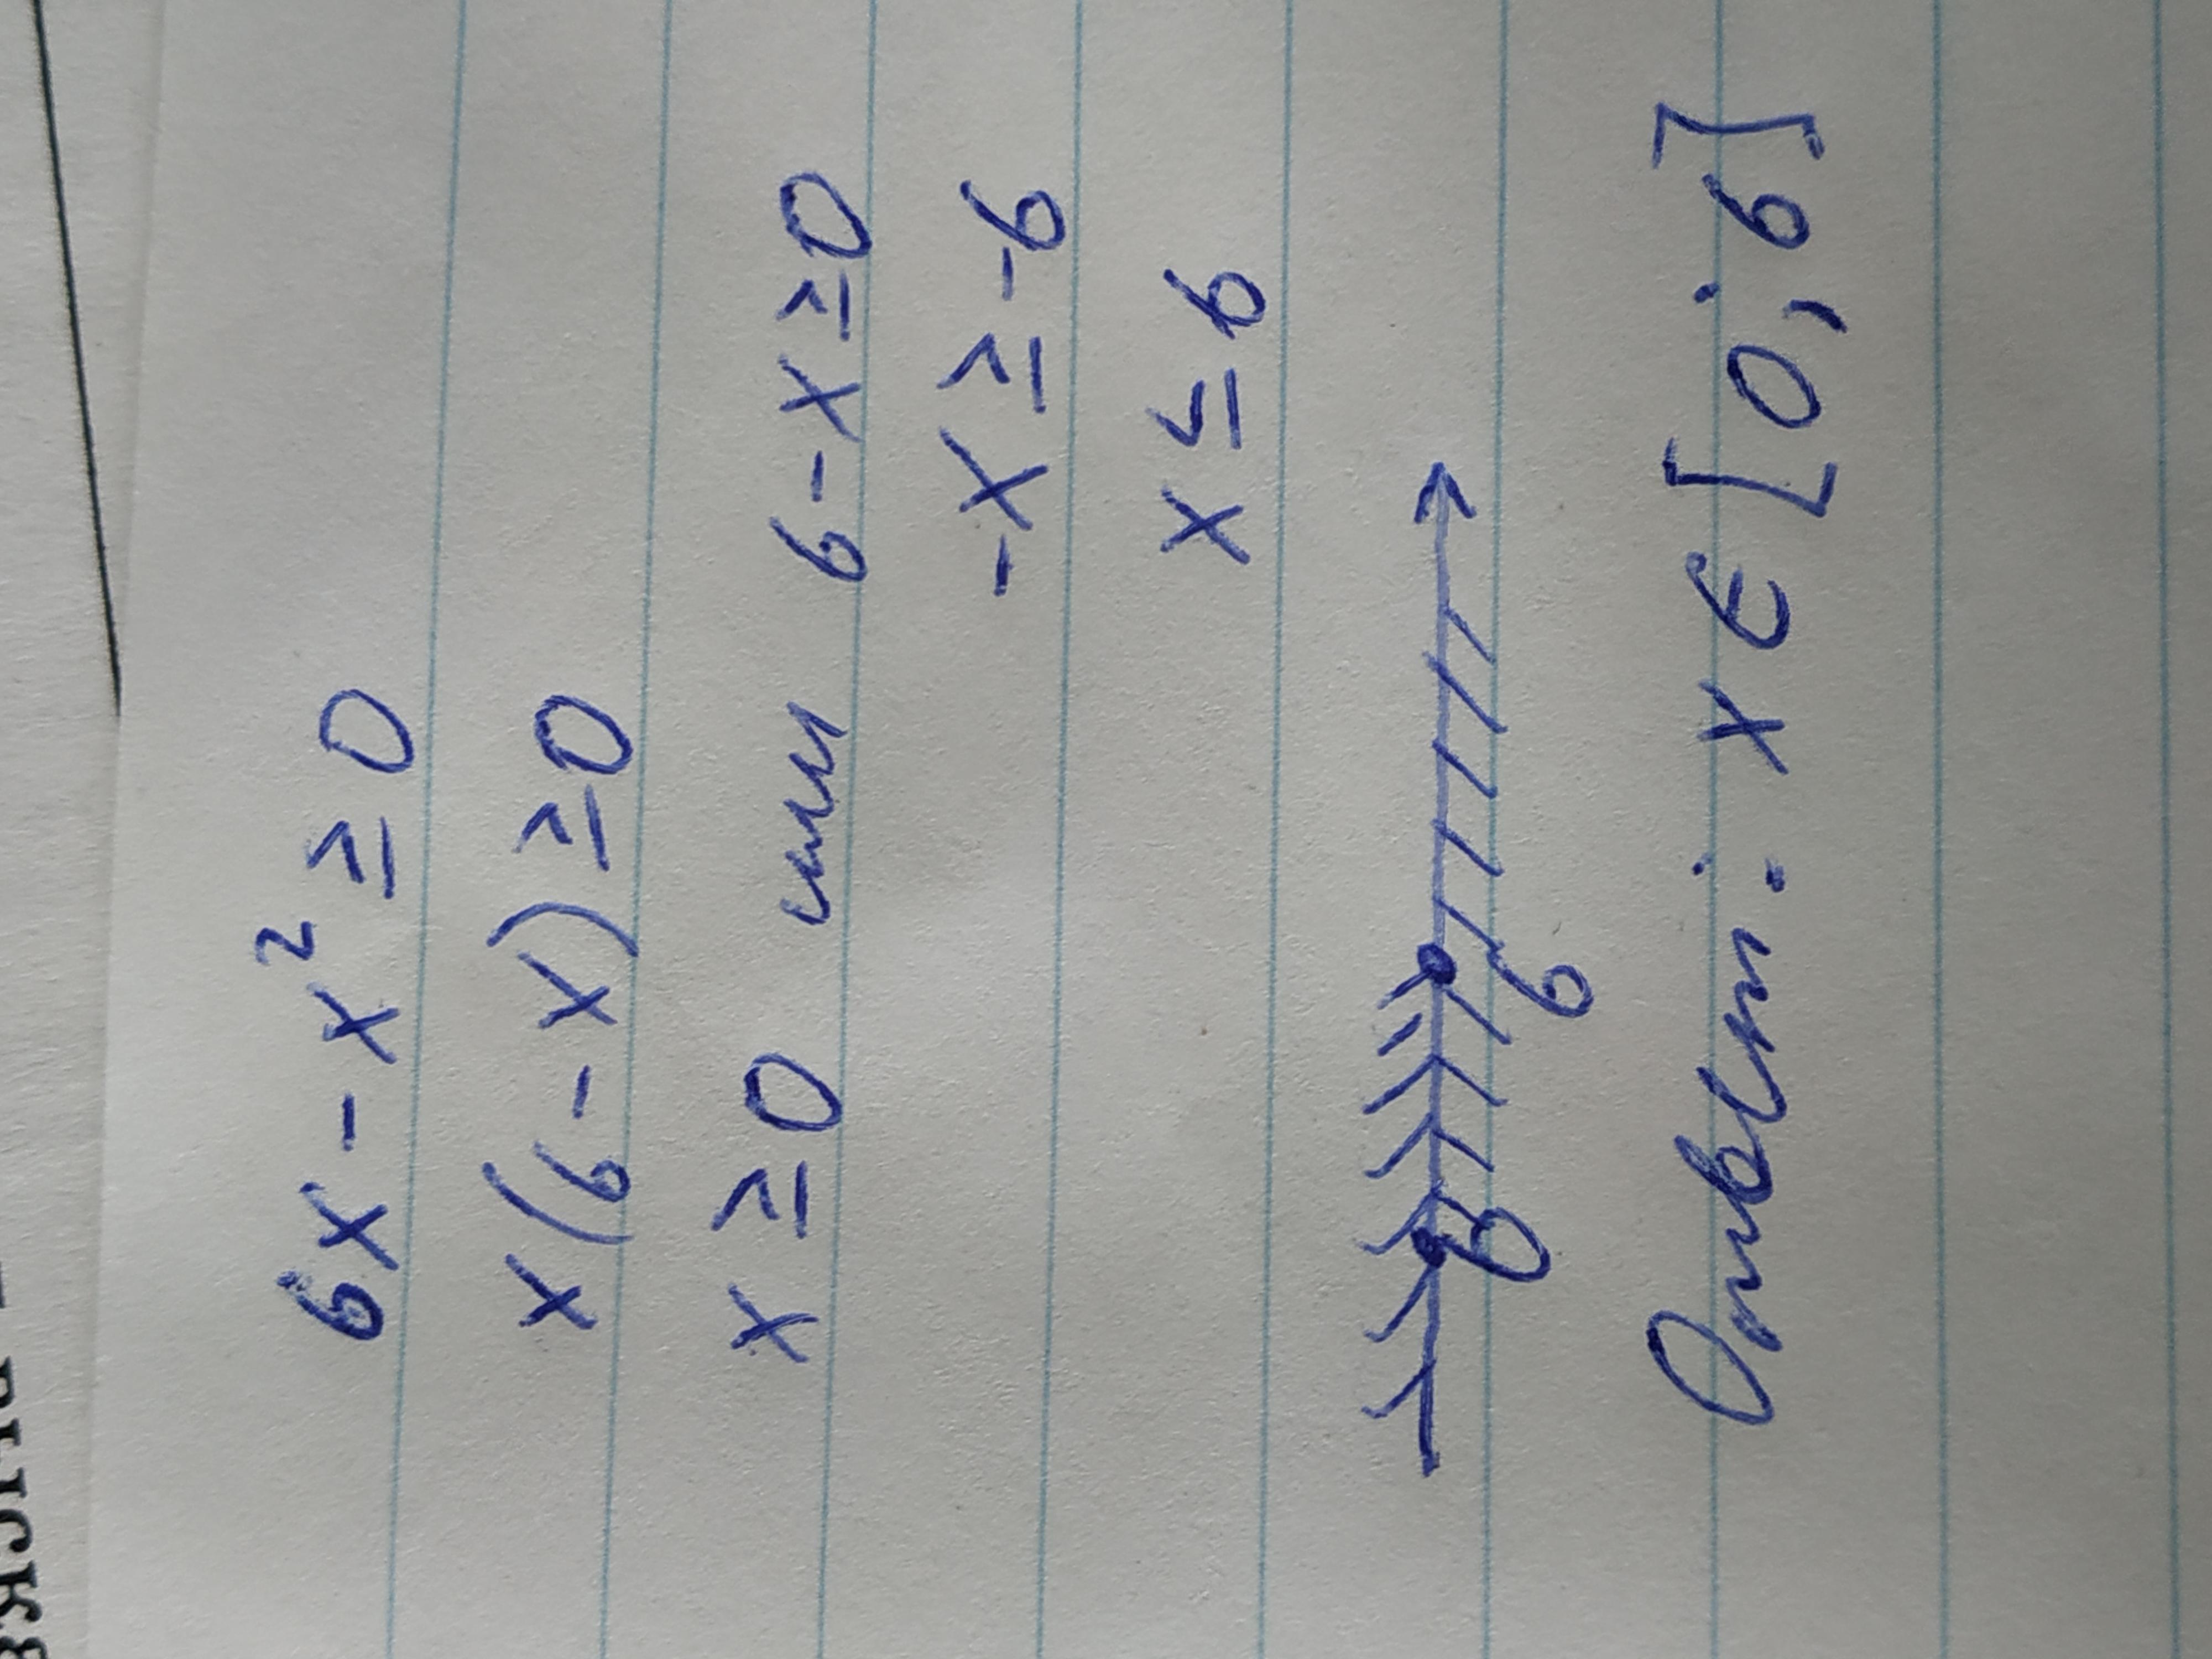 6x - x² ≥ 0
x(6 - x) ≥ 0
x ≥ 0 или 6 - x ≥ 0
-x ≥ -6
x ≤ 6
0 6
Ответ: x ∈ [0; 6]